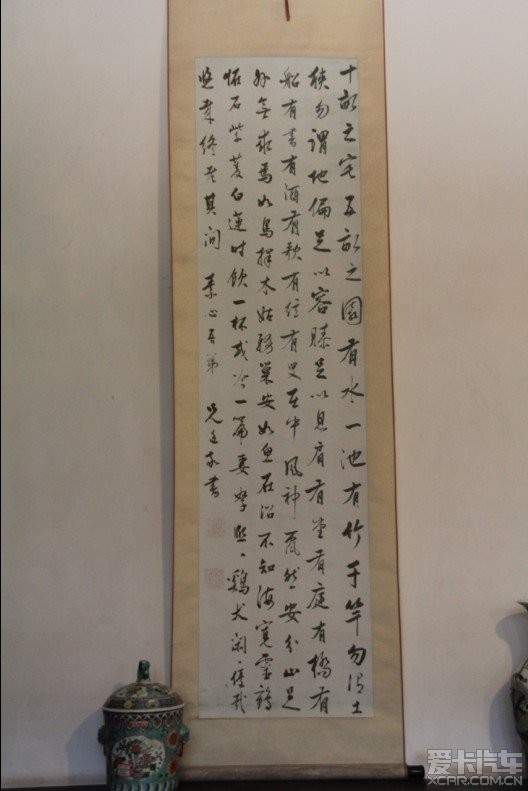 十畝之宅五畝之園有水一池有竹千竿勿謂土
狹勿謂地偏足以容膝足以息肩有堂有庭有橋有
船有書有酒有歌有絃有叟在中風神然安分知足
外無求焉如鳥擇木姑務巢安如魚在沼不知海寬靈鶴
怪石紫菱白蓮時飲一杯或吟一篇妻孥熙々鷄犬閑々優哉
悠哉終老其間 素心吾弟 兄書
爱卡汽车
XCAR.COM.CN